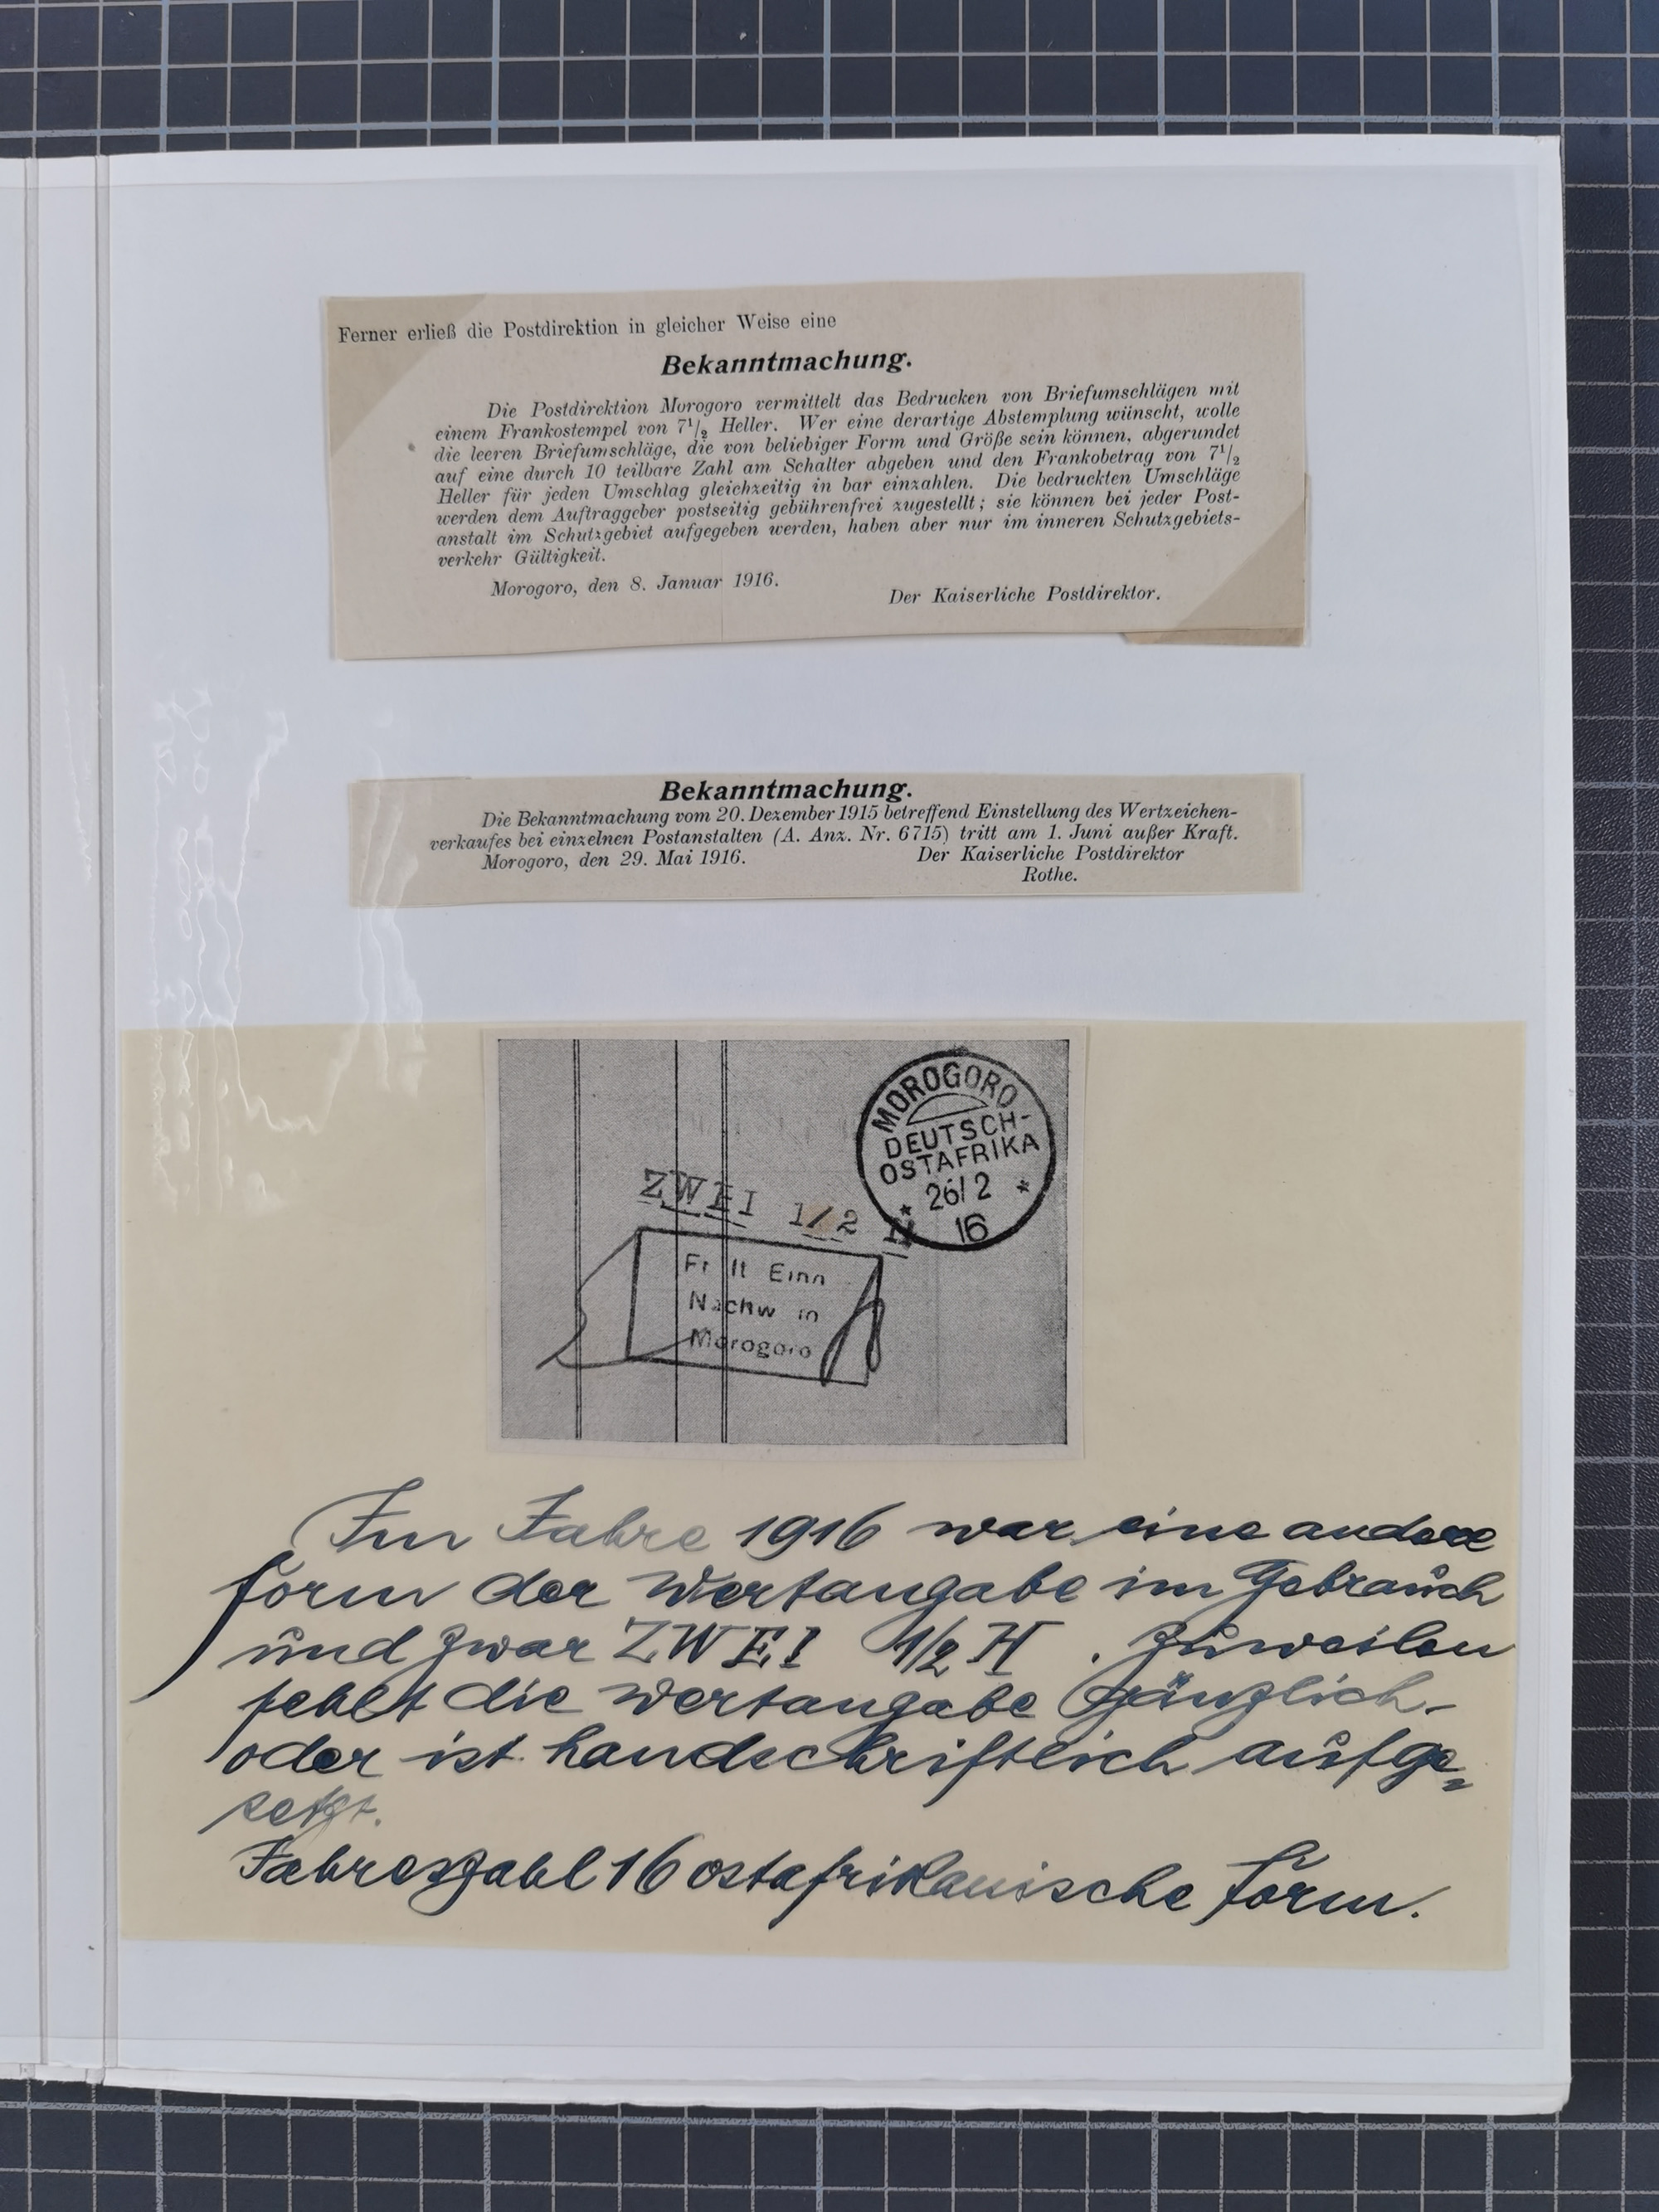 Ferner erließ die Postdirektion in gleicher Weise eine
Bekanntmachung.
Die Postdirektion Morogoro vermittelt das Bedrucken von Briefumschlägen mit
einem Frankostempel von 7½ Heller. Wer eine derartige Abstemplung wünscht, wolle
die leeren Briefumschläge, die von beliebiger Form und Größe sein können, abgerundet
auf eine durch 10 teilbare Zahl am Schalter abgeben und den Frankobetrag von 7½
Heller für jeden Umschlag gleichzeitig in bar einzahlen. Die bedruckten Umschläge
werden dem Auftraggeber postseitig gebührenfrei zugestellt; sie können bei jeder Post-
anstalt im Schutzgebiet aufgegeben werden, haben aber nur im inneren Schutzgebiets-
verkehr Gültigkeit.
Morogoro, den 8. Januar 1916.
Der Kaiserliche Postdirektor.
Bekanntmachung.
Die Bekanntmachung vom 20. Dezember 1915 betreffend Einstellung des Wertzeichen-
verkaufes bei einzelnen Postanstalten (A. Anz. Nr. 6715) tritt am 1. Juni außer Kraft.
Morogoro, den 29. Mai 1916.
Der Kaiserliche Postdirektor
Rothe.
MOROGORO
DEUTSCH-
OSTAFRIKA
* 26/2 *
16
ZWEI 1/2 H
Fr lt Einn
Nachw in
Morogoro
Im Jahre 1916 war eine andere
Form der Wertangabe im Gebrauch
und zwar ZWEI 1/2 H. Zuweilen
fehlt die Wertangabe gänzlich
oder ist handschriftlich aufge=
setzt.
Jahreszahl 16 ostafrikanische Form.